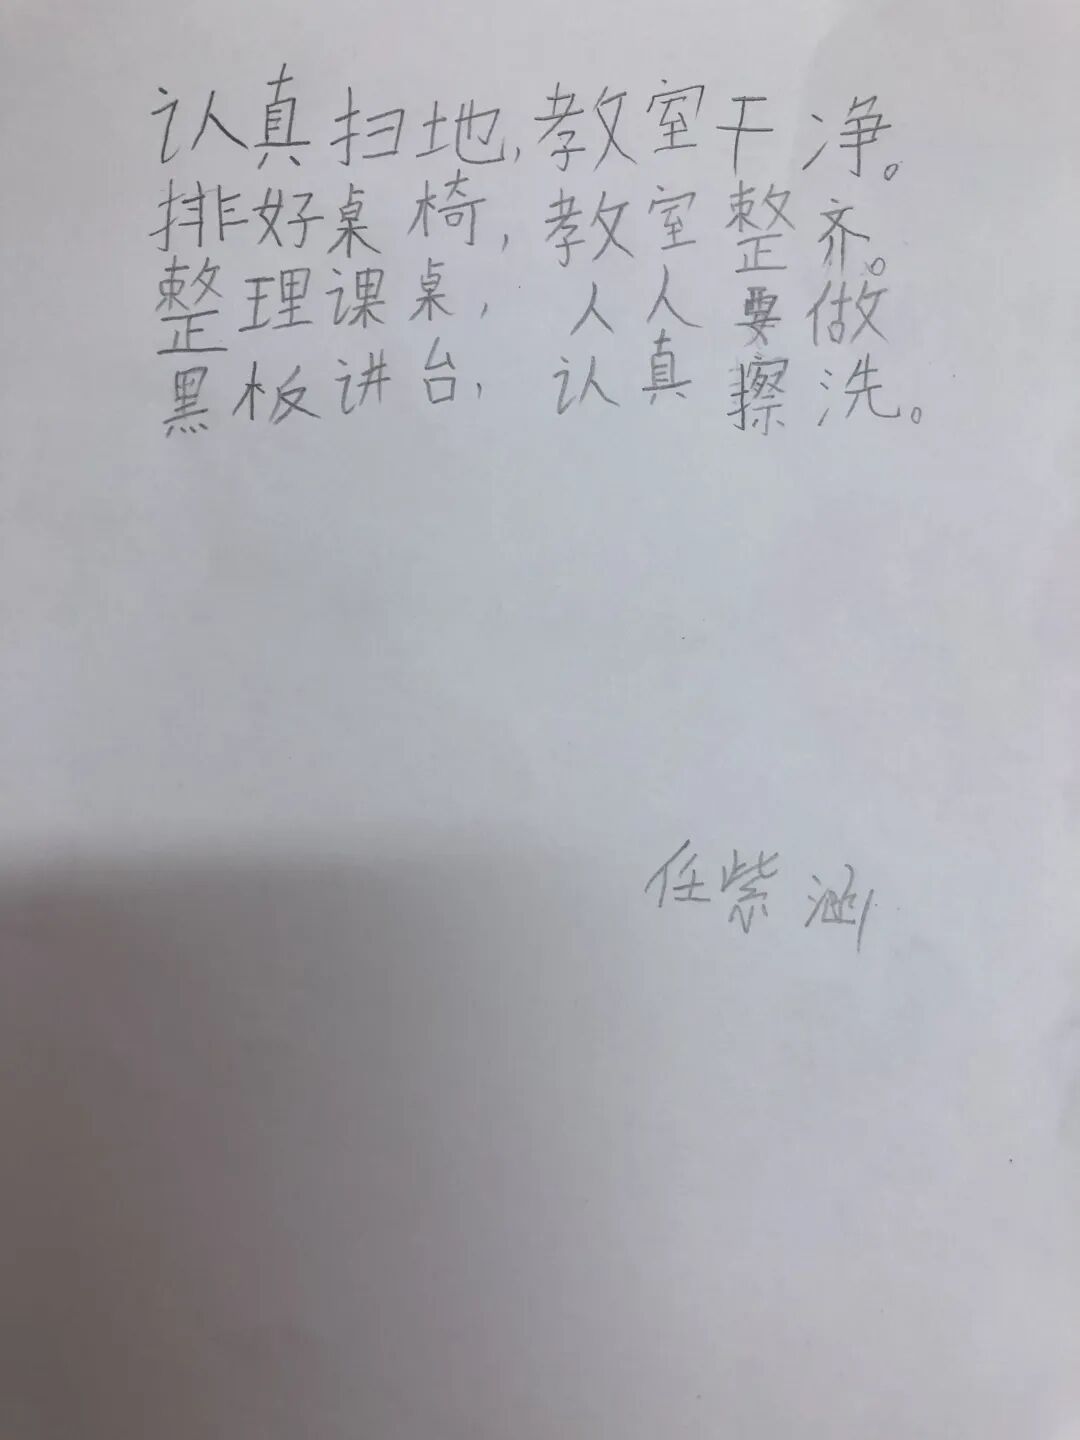 认真扫地,教室干净。
排好桌椅,教室整齐。
整理课桌,人人要做
黑板讲台,认真擦洗。
任紫涵